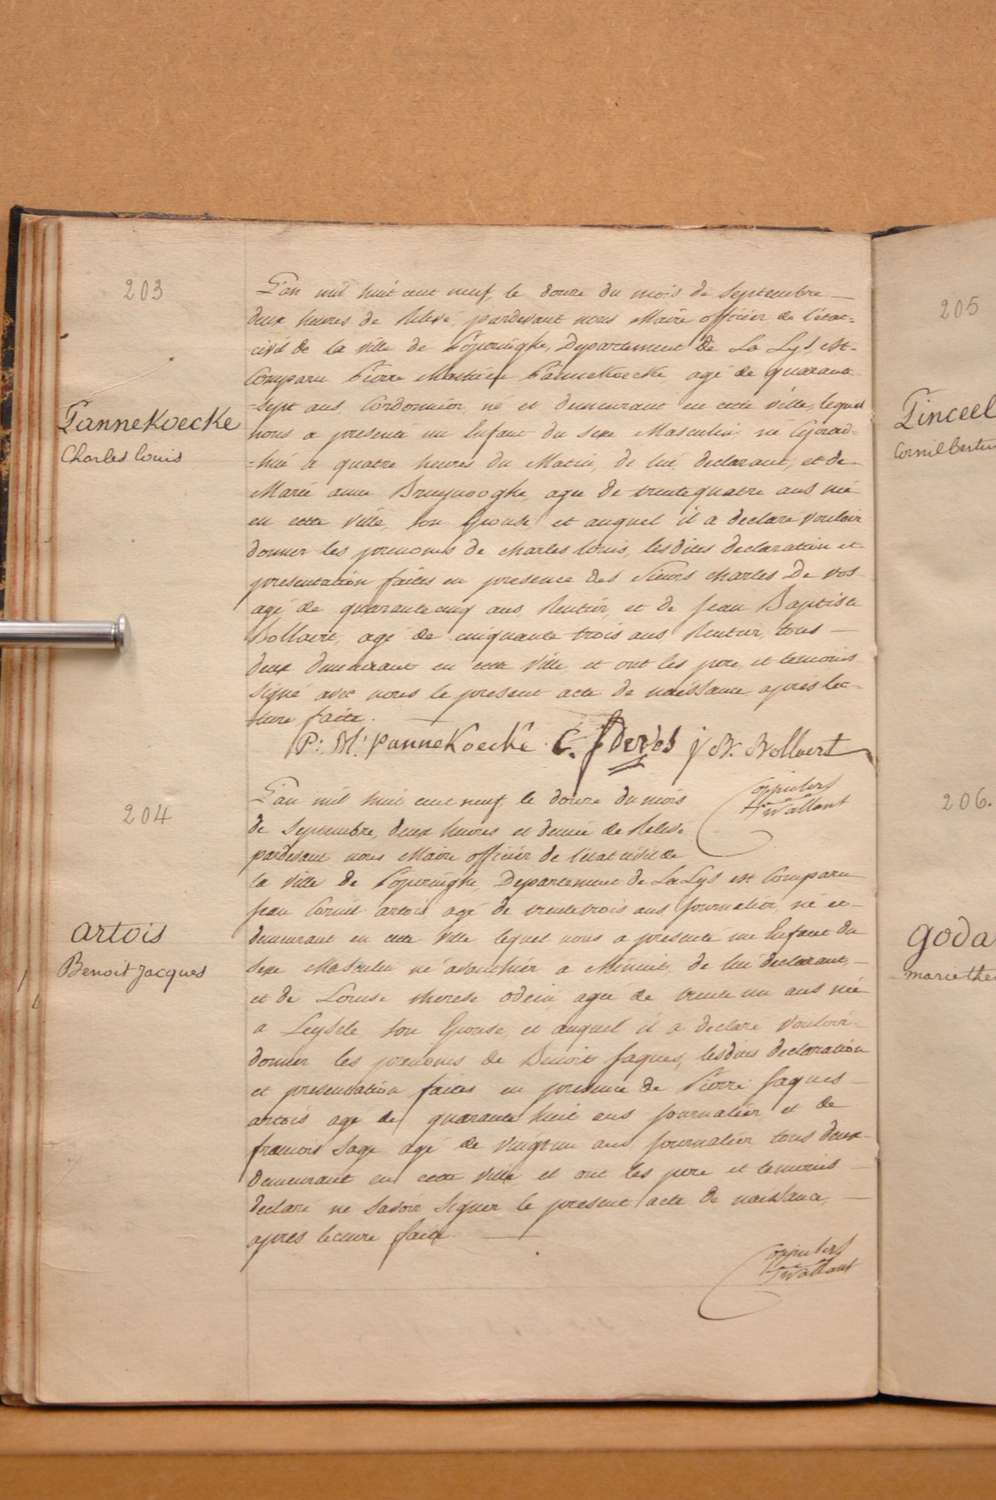 203
PanneKoecke
Charles louis
L'an mil huit cent neuf, le douze du mois de Septembre
deux heures de Relevé, pardevant nous Maire officier de l'état-
civil de la ville de Poperinghe, Departement de La Lys, est
Comparu Pierre Mathieu PanneKoecke agé de quarante
-sept ans, Cordonnier, né et demeurant en cette ville, lequel
nous a presenté un Enfant du sexe Masculin né
a quatre heures du Matin, de lui declarant, et de
Marie anne Bruynooghe, agee de trentequatre ans née
en cette ville, son Epouse et auquel il a declare vouloir
donner les prenoms de charles louis, lesdites declaration et
presentation faites en presence des Sieurs charles De vos
agé de quarantecinq ans, Rentier, et de Jean Baptiste
Bollaert, agé de cinquante trois ans Rentier, tous
deux demeurant en cette ville, et ont les pere, et temoins
signé avec nous le present acte de naissance après lec-
-ture faite.
P: M: PanneKoecke C. J Devos J B. Bollaert
204
artois
Benoit Jacques
L'an mil huit cent neuf, le douze du mois
de Septembre, deux heures et demie de Relevé
pardevant nous Maire officier de l'état civil de
la ville de Poperinghe, Departement de La Lys est Comparu
Jean Cornil artois agé de trentetrois ans Journalier, né et
demeurant en cette ville lequel nous a presenté un Enfant du
sexe Masculin né avanthier a Minuit, de lui declarant
et de Louise therese odein agée de trente un ans née
a Leysele son Epouse, et auquel il a declare vouloir
donner les prenoms de Benoit Jaques, lesdites declaration
et presentation faites en presence de Pierre Jaques
artois agé de quarante huit ans Journalier et de
francois Sage agé de vingtun ans Journalier tous deux
demeurant en cette ville et ont les pere et temoins
declaré ne savoir signer le present acte de naissance,
après lecture faite
205
Tinceel
Cornil
206.
goda
marie the